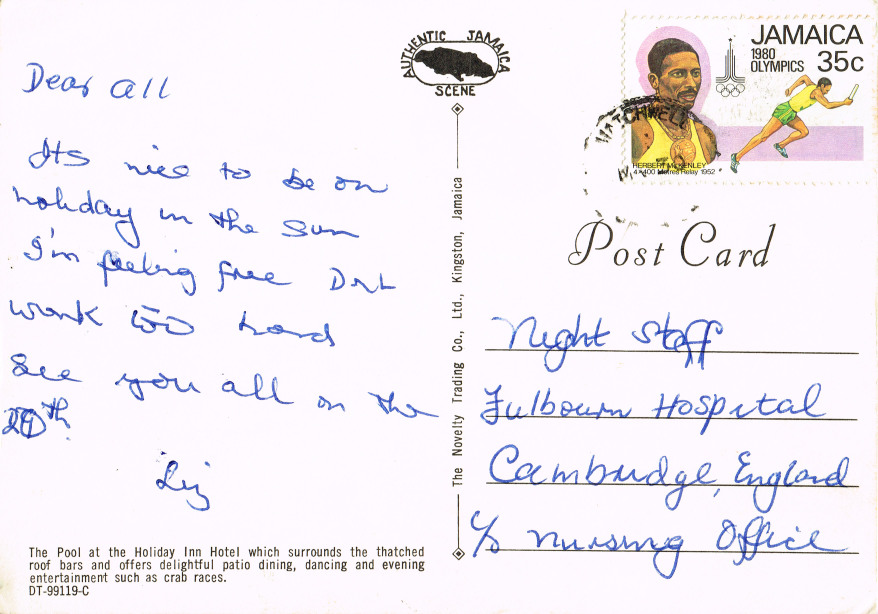 Dear all
Its nice to be on
holiday in the Sun
I'm feeling free Dnt
work too hard
See you all on the
Liz
The Pool at the Holiday Inn Hotel which surrounds the thatched
roof bars and offers delightful patio dining, dancing and evening
entertainment such as crab races.
DT-99119-C
AUTHENTIC JAMAICA
SCENE
The Novelty Trading Co., Ltd., Kingston, Jamaica
JAMAICA
1980
OLYMPICS
35c
HERBERT McKENLEY
4×400 Metres Relay 1952
Post Card
Night Staff
Fulbourn Hospital
Cambridge, England
c/o Nursing Office